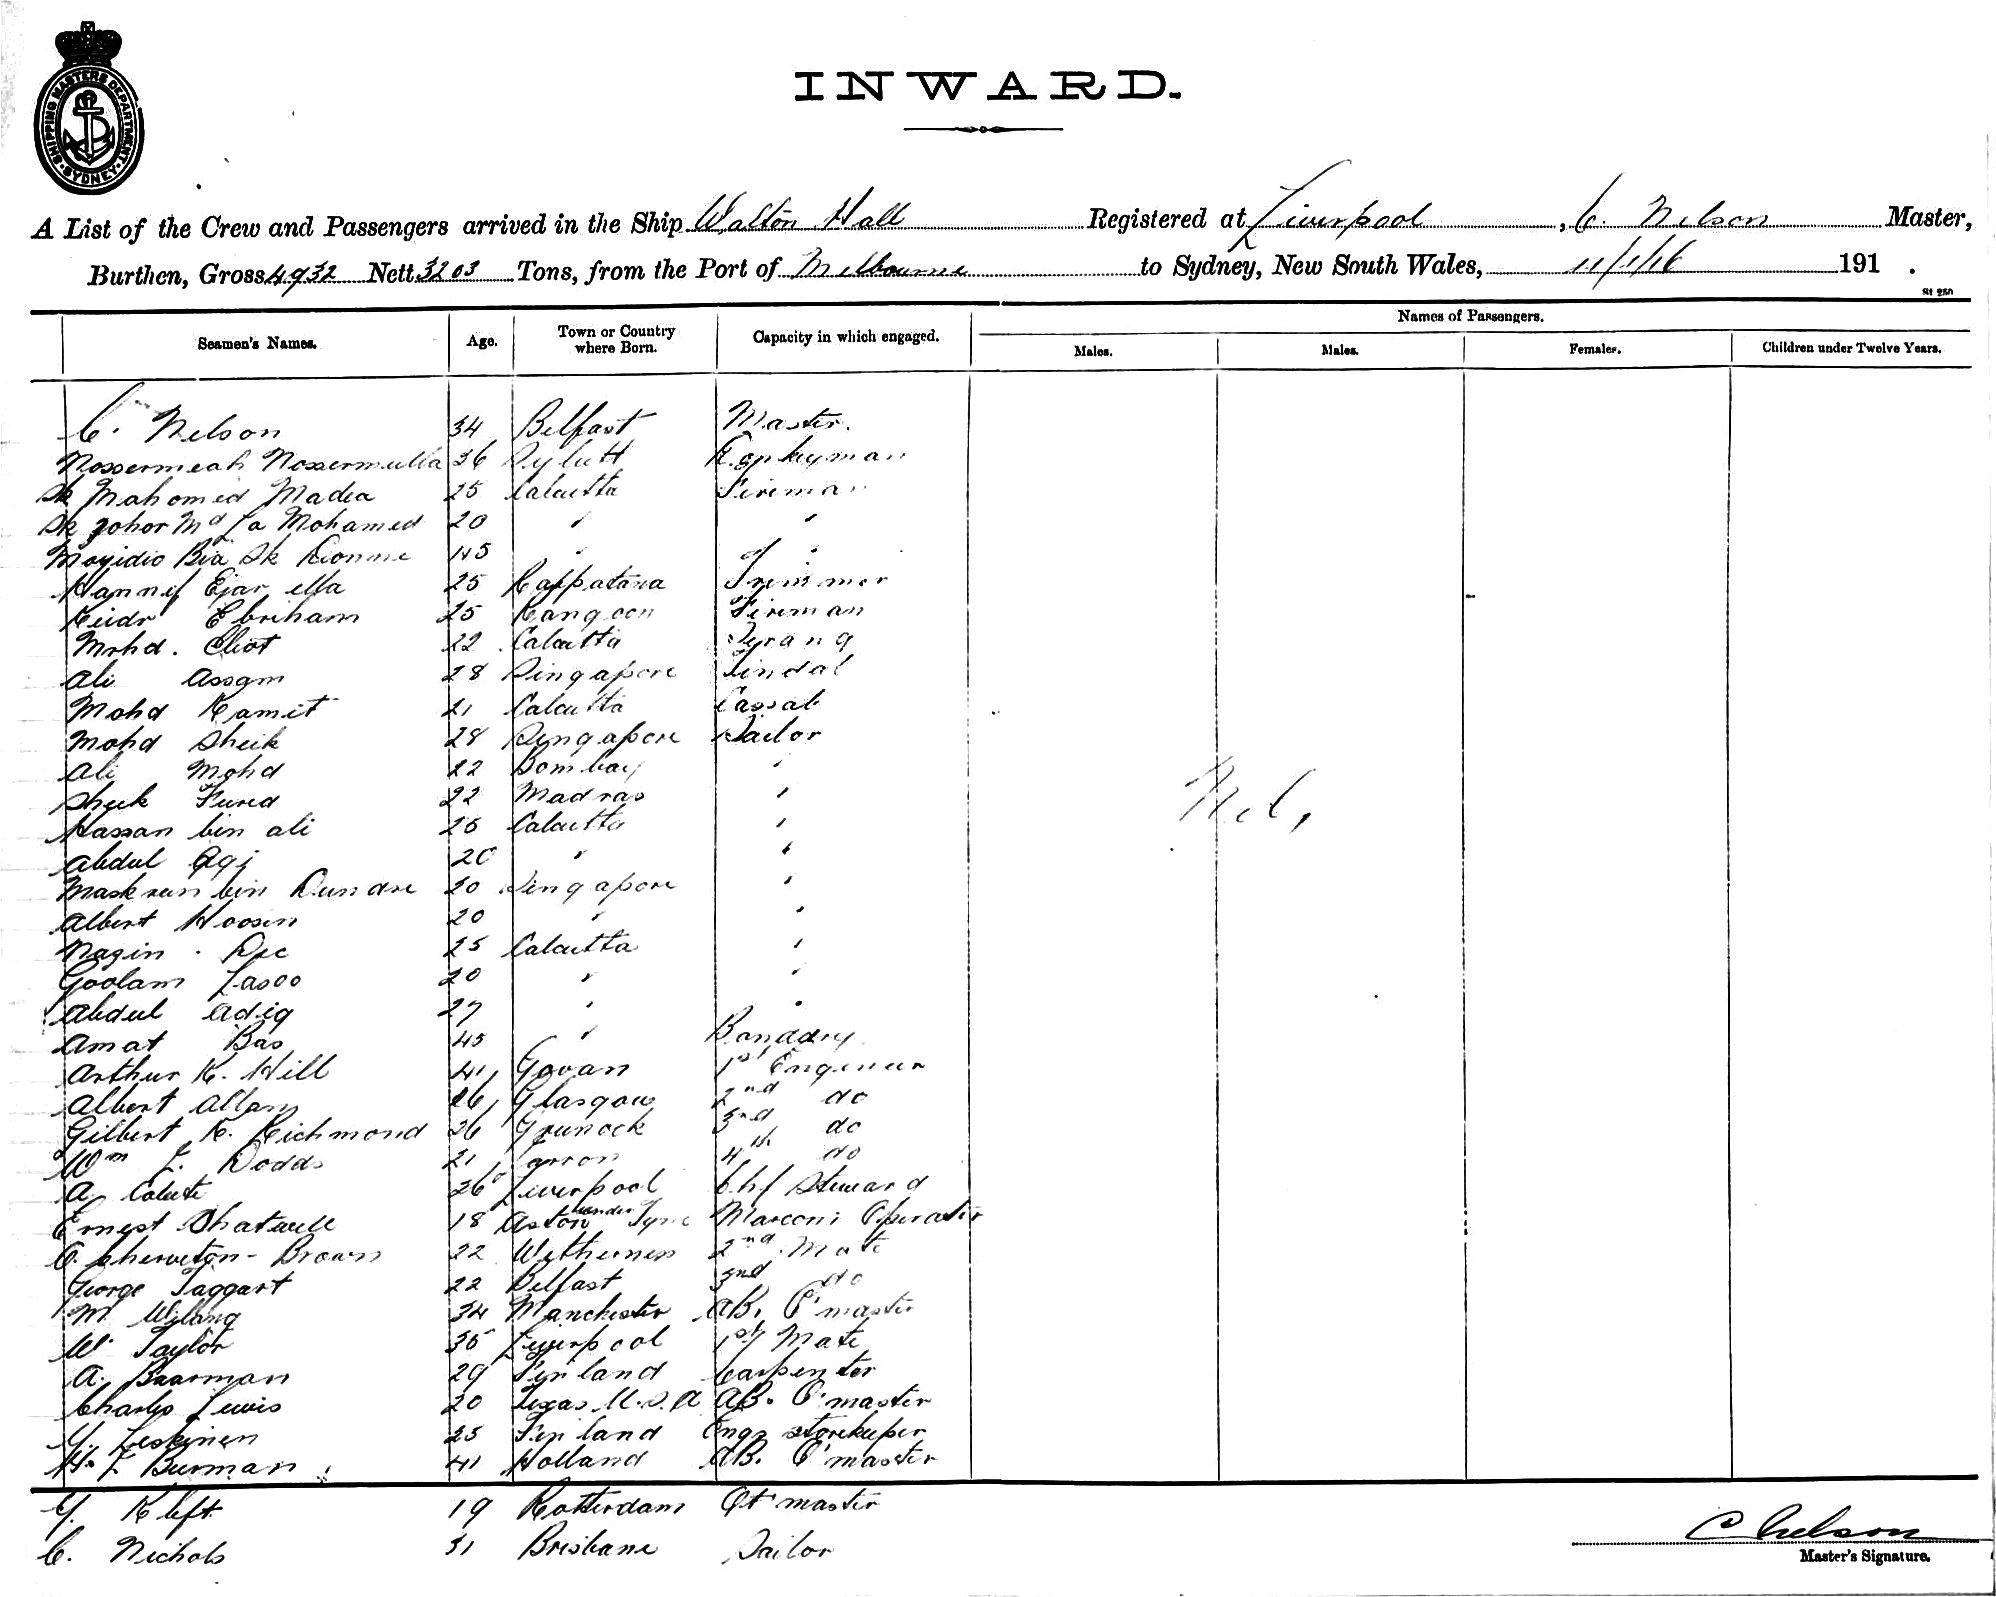 SHIPPING MASTERS DEPARTMENT
SYDNEY
INWARD.
A List of the Crew and Passengers arrived in the Ship Walton Hall Registered at Liverpool, C. Nelson Master,
Burthen, Gross 4932 Nett 3203 Tons, from the Port of Melbourne to Sydney, New South Wales, 11/1/16 191 .
St 250
Names of Passengers.
Seamen's Names. Age. Town or Country where Born. Capacity in which engaged. Males. Males. Females. Children under Twelve Years.
C. Nelson 34 Belfast Master.
Nossermeah Nossermulla 36 Sylutt
Sk Mahomed Madea 25 Calcutta Fireman
Sk Johor Md La Mohamed 20 " "
Moyidio Bia Sk 45 " "
Hannif Ejar ella 25 Trimmer
Ebriham 25 Rangoon Fireman
Mohd. Eliot 22 Calcutta Syrang
Ali Assgm 28 Singapore Tindal
Mohd Ramit 21 Calcutta Cassab
Mohd Sheik 28 Singapore Sailor
Ali Mohd 22 Bombay "
Sheik Fured 22 Madras "
Nil,
Hassan bin ali 25 Calcutta "
Abdul 20 " "
bin 20 Singapore "
Albert Hoosen 20 " "
Nagin. Dec 25 Calcutta "
Goolam Lasoo 20 " "
Abdul Adig 27 " "
Amat Bas 45 " Bandary
Arthur K. Hill 41, Govan 1st Engineer
Albert Allan 26, Glasgow 2nd do
Gilbert K. Richmond 26 Grunock 3rd do
Wm L. Dodds 21 Carron 4th do
A. 26 Liverpool Chf Steward
Ernest 18 Aston under Tyne Marconi Operator
C. Brown 22 Withernsea 2nd Mate
George Taggart 22 Belfast 3rd do
M. 34 Manchester AB. Q'master
W. Taylor 35 Liverpool 1st Mate
A. Baarman 29 Finland Carpenter
Charles Lewis 20 Texas U.S.A AB. Q'master
Y. Leskinen 25 Finland Engr storekeeper
H. L Burman 41 Holland AB. Q'master
Y. Kleft 19 Rotterdam Qt master
C. Nichols 31 Brisbane Sailor
C Nelson
Master's Signature.